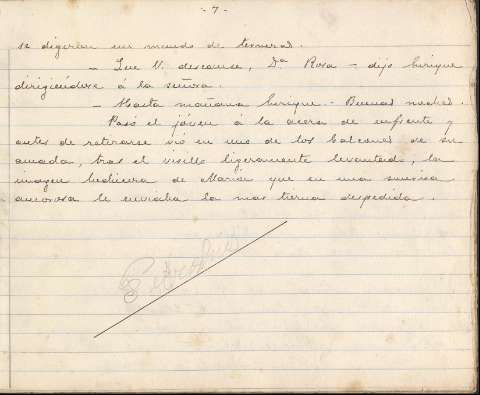 - 7 -
se digerían un mundo de ternezas.
- Que V. descanse, Dª Rosa - dijo Enrique
dirigiéndose á la señora.
- Hasta mañana Enrique. - Buenas noches.
Pasó el jóven á la acera de enfrente y
antes de retirarse vió en uno de los balcones de su
amada, tras el visillo ligeramente levantado, la
imagen hechicera de María que en una sonrisa
amorosa le enviaba la mas tierna despedida.